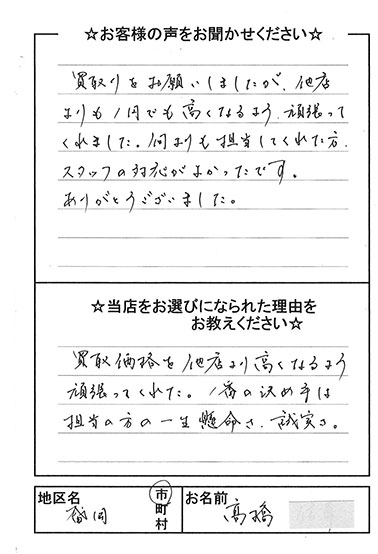 ☆お客様の声をお聞かせください☆
買取りをお願いしましたが、他店
よりも1円でも高くなるよう、頑張って
くれました。何よりも担当してくれた方、
スタッフの対応がよかったです。
ありがとうございました。
☆当店をお選びになられた理由を
お教えください☆
買取価格を他店より高くなるよう
頑張ってくれた。1番の決め手は
担当の方の一生懸命さ、誠実さ。
地区名 盛岡 市町村
お名前 高橋